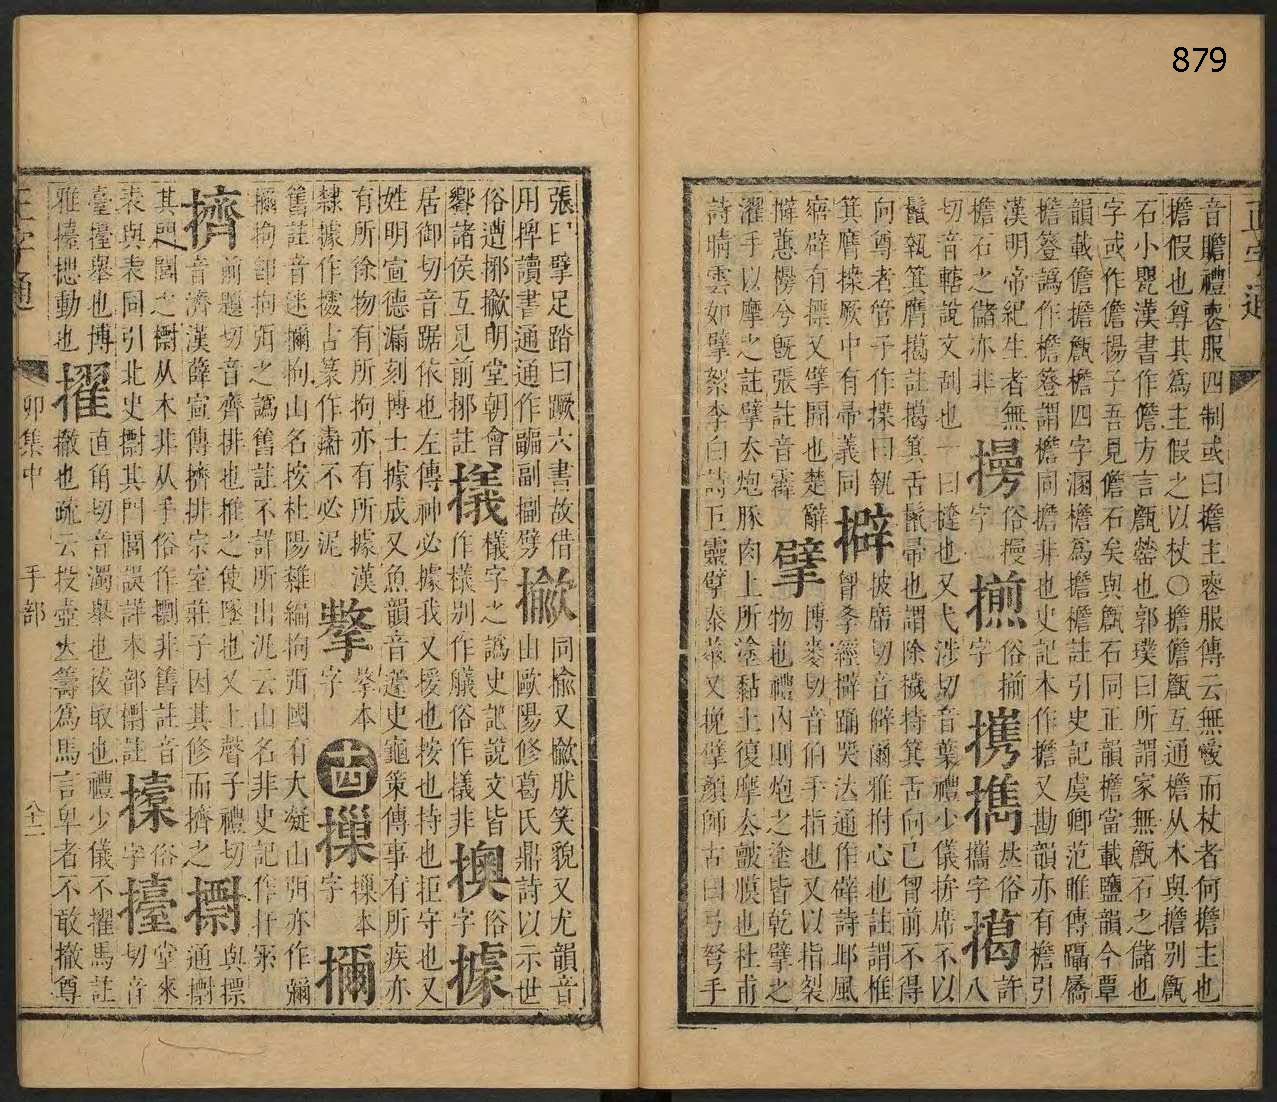 879
正字通
音瞻禮喪服四制或曰擔主喪服傳云無爵而杖者何擔主也
擔假也尊其爲主假之以杖〇擔儋甔互通檐从木與擔别甔
石小甖漢書作儋方言甔罃也郭璞曰所謂家無甔石之儲也
字或作儋揚子吾見儋石矣與甔石同正韻擔當載鹽韻今覃
韻載儋擔甔檐四字溷檐爲擔檐註引史記虞卿范睢傳躡屩
擔簦譌作檐簦謂檐同擔非也史記本作擔又勘韻亦有擔引
漢明帝紀生者無
擔石之儲亦非 㩢 俗摱字 㨵 俗揃字 㩗 㩦 𠀤俗攜字 擖 許八
切音轄說文刮也一曰撻也又弋涉切音葉禮少儀拚席不以
鬛執箕膺擖註擖箕舌鬛帚也謂除穢持箕舌向己胷前不得
向尊者管子作揲曰執
箕膺揲厥中有帚義同 擗 披席切音僻爾雅拊心也註謂椎
胷孝經擗踊哭泣通作辟詩邶風
寤辟有摽又擘開也楚辭
擗蕙櫋兮旣張註音霹 擘 博麥切音伯手指也又以指裂
物也禮內則炮之塗皆乾擘之
濯手以摩之註擘去炮豚肉上所塗黏土復摩去皽膜也杜甫
詩晴雲如擘絮李白詩巨靈擘泰華又挽擘顏師古曰弓弩手
張曰擘足踏曰蹶六書故借
用捭讀書通通作副副劈 擨 同揄又擨肰笑貌又尤韻音
由歐陽修葛氏鼎詩以示世
俗遭揶擨明堂朝會
響諸侯互見前揶註 㩘 樣字之譌史記說文皆
作樣别作艤俗作㩘非 㩒 俗字 據
居御切音踞依也左傳神必據我又援也按也持也拒守也又
姓明宣德漏刻博士據成又魚韻音蘧史龜策傳事有所疾亦
有所徐物有所拘亦有所據漢
隸據作㩀古篆作𤅬不必泥 擎 㩓本字 十四 㩰 㩰本字 㩧
舊註音迷㩧拘山名按杜陽雜編拘弭國有大凝山弭亦作㣆
㩧拘卽拘弭之譌舊註不詳所出泥云山名非史記作扞罙
擠 前題切音齊排也推之使墜也又上聲子禮切
音濟漢薛宣傳擠排宗室莊子因其修而擠之 㩌 與摽
通㩌
其門之闑之㯕从木非从手俗作㩌非舊註音
表與表同引北史㯕其門闑誤詳木部㯕註 㩫 俗字 擡 堂來
切音
臺擡舉也博
雅擡揌動也 擢 直角切音濁舉也拔取也禮少儀不擢馬註
擢撤也疏云投壺立籌爲馬言卑者不敢撤尊
正字通
卯集中
手部
八十二